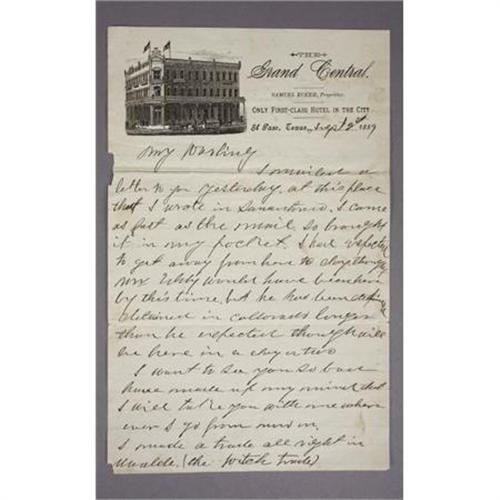 THE
Grand Central.
SAMUEL ECKER, Proprietor.
ONLY FIRST-CLASS HOTEL IN THE CITY
El Paso, Texas, Sept 2nd 1889
My Darling
I mailed a
letter to you yesterday, at this place
that I wrote in Sanantonio. I came
as fast as the mail so brought
it in my pocket. I had expected
to get away from here to day though
Mr would have been here
by this time, but he has been
detained in Colorado longer
than he expected though will
be here in a day or two
I want to see you so bad
have made up my mind that
I will take you with me where
ever I go from now on.
I made a trade all right in
Uvalde, (the Witch trade)